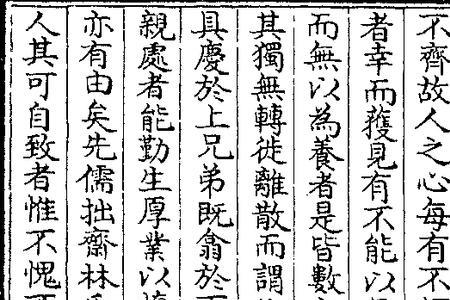 不齊故人之心每有不
者幸而䕶見有不能以
而無以為養者是皆數
其獨無轉徙離散而謂
具慶於上兄弟既翕於
親處者能勤生厚業以
亦有由矣先儒拙齋林
人其可自致者惟不愧